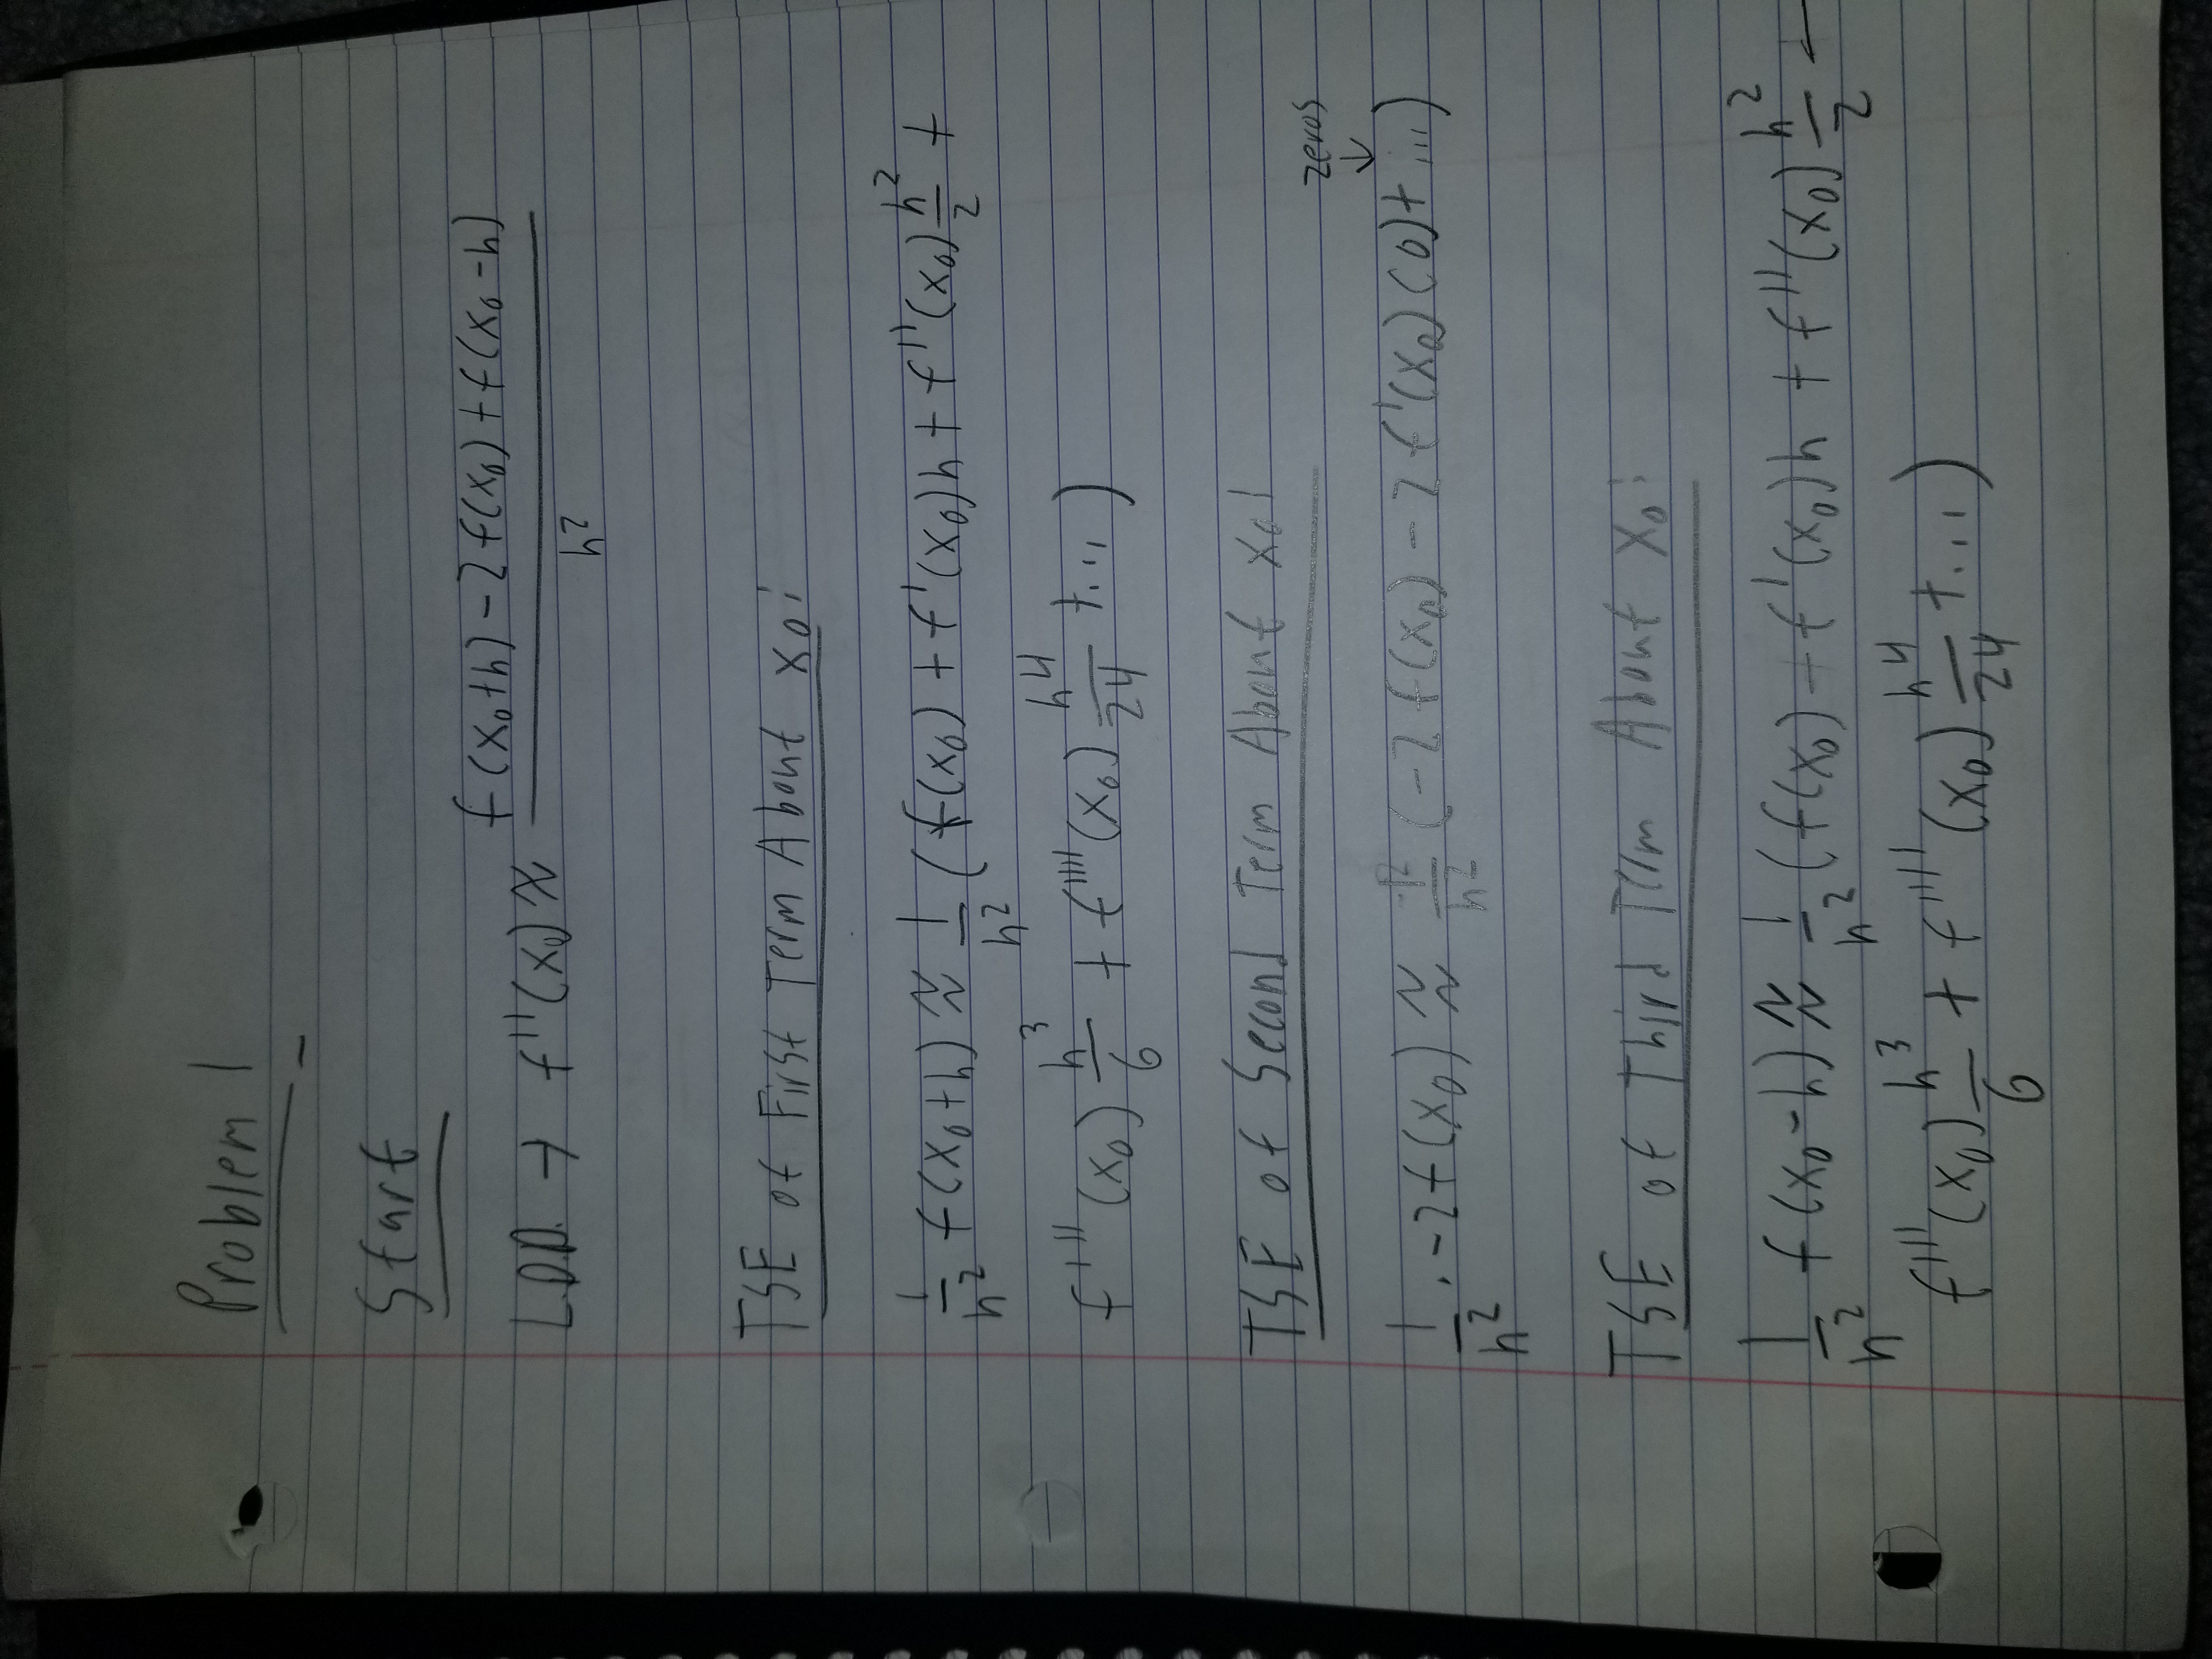 Problem 1
Start
L.D.D. → f''(x₀) ≈ (f(x₀+h) - 2f(x₀) + f(x₀-h)) / h²
TSE of First Term About x₀:
1/h² f(x₀+h) ≈ 1/h² (f(x₀) + f'(x₀)h + f''(x₀) h²/2 +
f'''(x₀) h³/6 + f''''(x₀) h⁴/24 + ...)
TSE of Second Term About x₀:
zeros
↓
1/h² · -2f(x₀) ≈ /h² (-2f(x₀) - 2f'(x₀)(0) + ...)
TSE of Third Term About x₀:
1/h² f(x₀-h) ≈ 1/h² (f(x₀) - f'(x₀)h + f''(x₀) h²/2 -
f'''(x₀) h³/6 + f''''(x₀) h⁴/24 + ...)